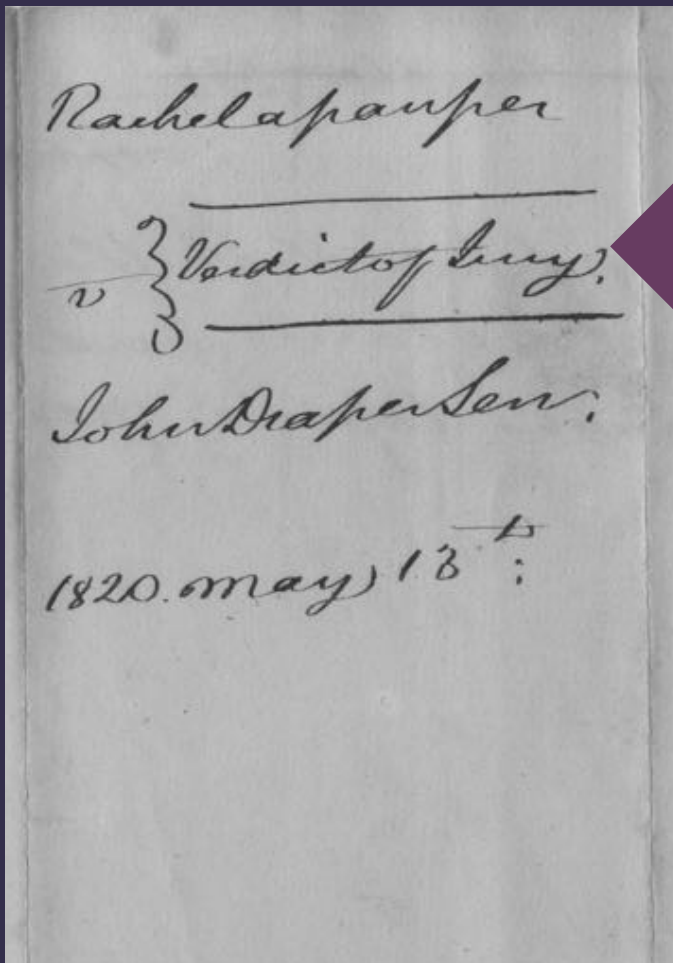 Rachel a pauper
v } Verdict of Jury.
John Draper Sen:
1820. May 13th: